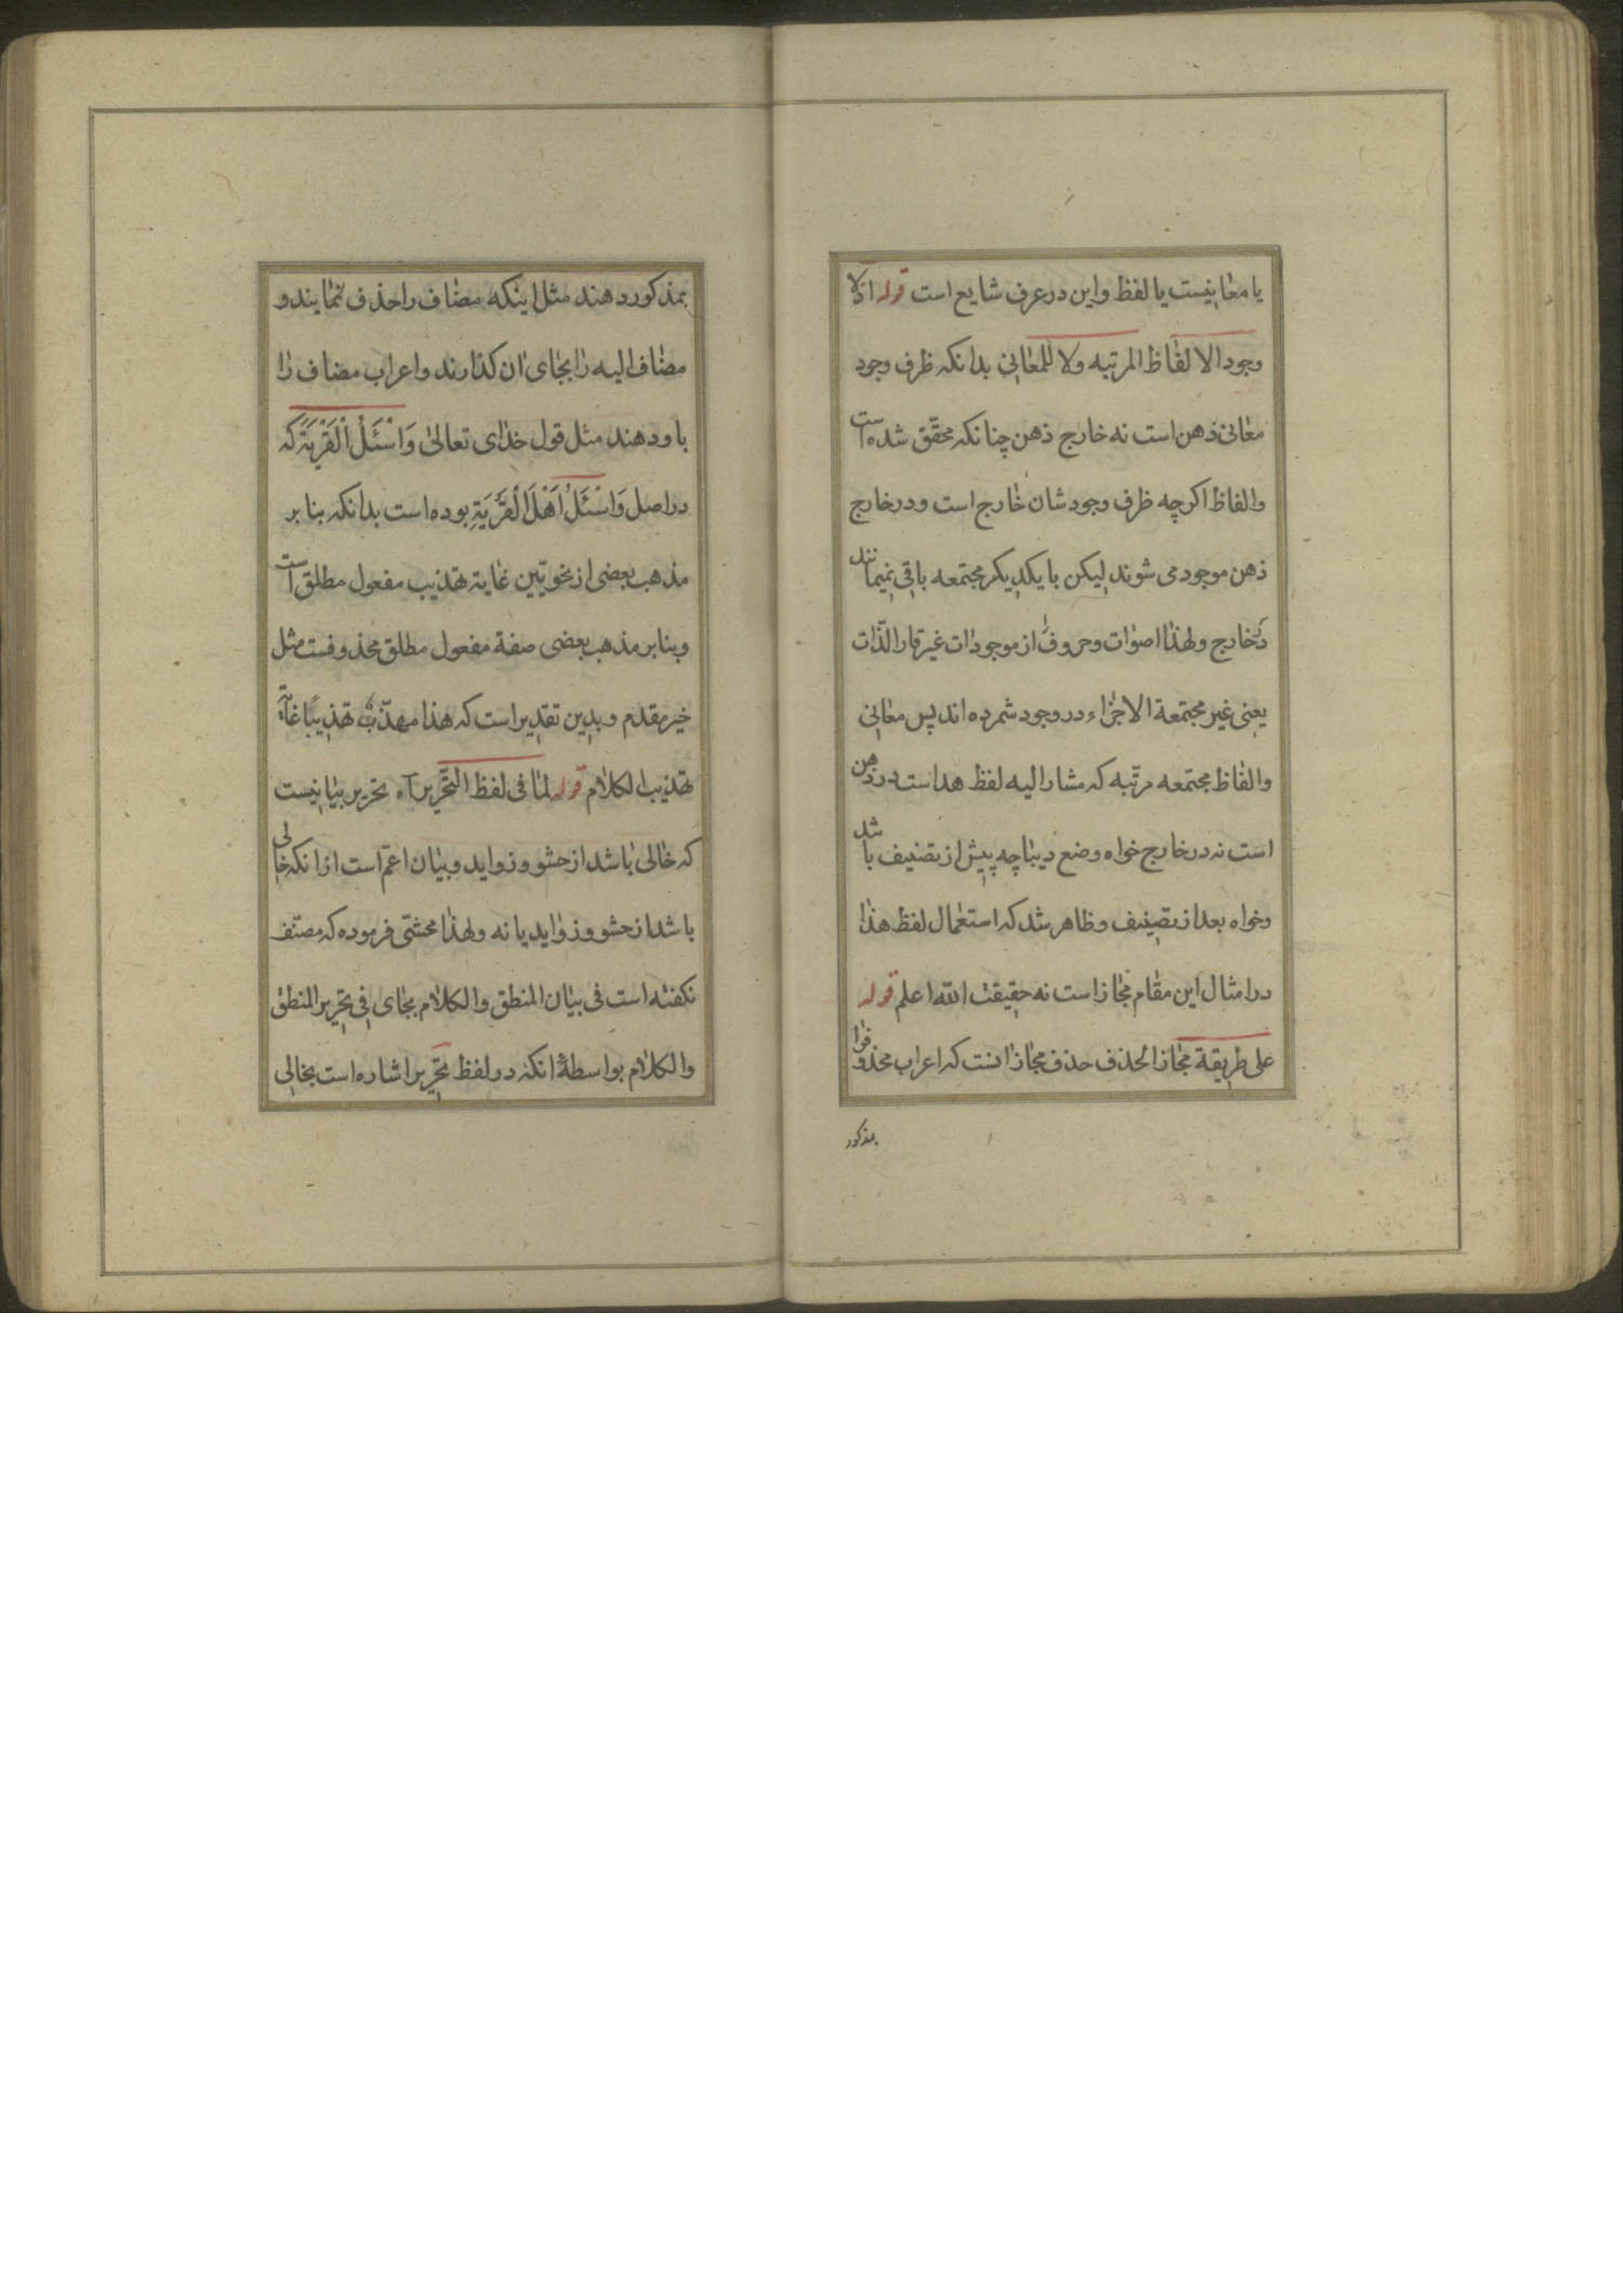 یا معانیست یا لفظ و این در عرف شایع است قوله اذ لا
وجود الالفاظ المرتبه ولا للمعانی بدانکه ظرف وجود
معانی ذهن است نه خارج ذهن چنانکه محقّق شده است
والفاظ اکرچه ظرف وجودشان خارج است و در خارج
ذهن موجود می شوند لیکن با یکدیکر مجتمعه باقی نمیمانند
در خارج ولهذا اصوات وحروف را از موجودات غیر قار الذّات
یعنی غیر مجتمعة الاجزاء در وجود شمرده اند پس معانی
والفاظ مجتمعه مرتّبه که مشار الیه لفظ هذا است در ذهن
است نه در خارج خواه وضع دیباچه پیش از تصنیف باشد
وخواه بعد از تصنیف وظاهر شد که استعمال لفظ هذا
در امثال این مقام مجاز است نه حقیقت الله اعلم قوله
علی طریقة مجاز الحذف حذف مجاز آنست که اعراب محذوف را
بمذکور
بمذکور دهند مثل اینکه مضاف را حذف نمایند و
مضاف الیه را بجای ان کذارند و اعراب مضاف را
باو دهند مثل قول خدای تعالیٰ وَاسْئَلْ الْقَرْیَةَ که
در اصل وَاسْئَلْ اَهْلَ الْقَرْیَةِ بوده است بدانکه بنا بر
مذهب بعضی از نحویّین غایة تهذیب مفعول مطلق است
و بنا بر مذهب بعضی صفة مفعول مطلق محذوفست مثل
خیر مقدم و بدین تقدیر است که هذا مهذّبٌ تهذیبًا غایة
تهذیب الکلام قوله لما فی لفظ التّحریر آه تحریر بیانیست
که خالی باشد از حشو و زواید و بیان اعمّ است از انکه خالی
باشد از حشو و زواید یا نه ولهذا محشّی فرموده که مصنّف
نکفته است فی بیان المنطق والکلام بجای فی تحریر المنطق
والکلام بواسطهٔ انکه در لفظ تحریر اشاره است بخالی